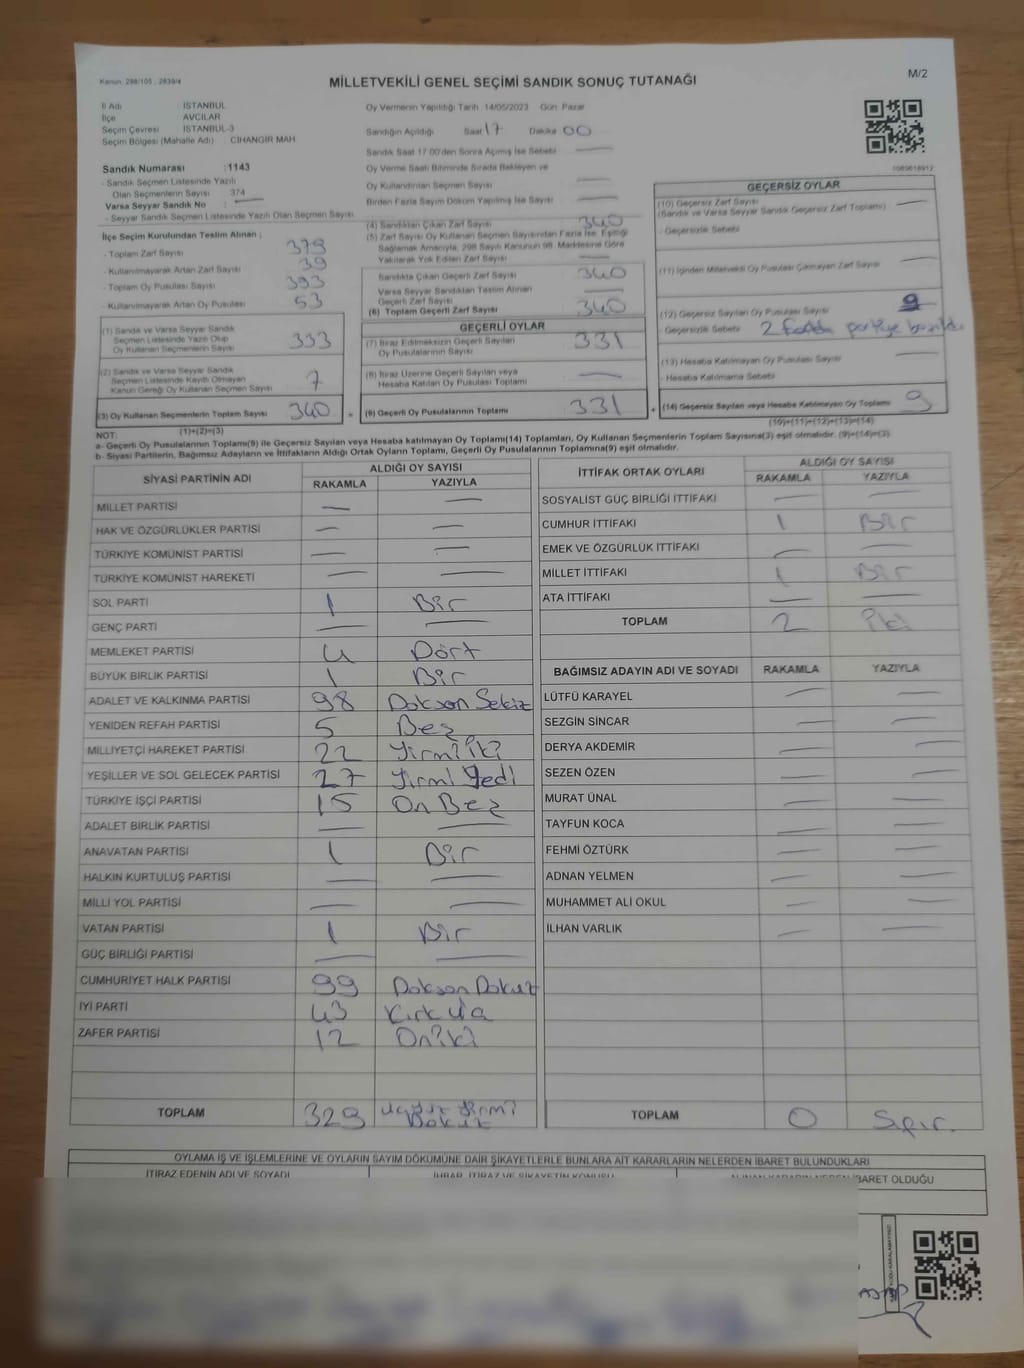 Kanun: 298/105 , 2839/4
MİLLETVEKİLİ GENEL SEÇİMİ SANDIK SONUÇ TUTANAĞI
M/2
İl Adı : İSTANBUL
İlçe : AVCILAR
Seçim Çevresi : İSTANBUL-3
Seçim Bölgesi (Mahalle Adı) : CİHANGİR MAH
Sandık Numarası :1143
- Sandık Seçmen Listesinde Yazılı
Olan Seçmenlerin Sayısı 374
Varsa Seyyar Sandık No : —
- Seyyar Sandık Seçmen Listesinde Yazılı Olan Seçmen Sayısı
İlçe Seçim Kurulundan Teslim Alınan ;
- Toplam Zarf Sayısı 379
- Kullanılmayarak Artan Zarf Sayısı 39
- Toplam Oy Pusulası Sayısı 393
- Kullanılmayarak Artan Oy Pusulası 53
(1) Sandık ve Varsa Seyyar Sandık
Seçmen Listesinde Yazılı Olup
Oy Kullanan Seçmenlerin Sayısı 333
(2) Sandık ve Varsa Seyyar Sandık
Seçmen Listesinde Kayıtlı Olmayan
Kanun Gereği Oy Kullanan Seçmen Sayısı 7
(3) Oy Kullanan Seçmenlerin Toplam Sayısı 340 =
(1)+(2)=(3)
Oy Vermenin Yapıldığı Tarih :14/05/2023 Gün: Pazar
Sandığın Açıldığı Saat 17 Dakika 00
Sandık Saat 17.00'den Sonra Açılmış İse Sebebi —
Oy Verme Saati Bitiminde Sırada Bekleyen ve
Oy Kullandırılan Seçmen Sayısı —
Birden Fazla Sayım Döküm Yapılmış İse Sayısı —
(4) Sandıktan Çıkan Zarf Sayısı 340
(5) Zarf Sayısı Oy Kullanan Seçmen Sayısından Fazla İse, Eşitliği
Sağlamak Amacıyla, 298 Sayılı Kanunun 98. Maddesine Göre
Yakılarak Yok Edilen Zarf Sayısı —
Sandıkta Çıkan Geçerli Zarf Sayısı 340
Varsa Seyyar Sandıktan Teslim Alınan
Geçerli Zarf Sayısı —
(6) Toplam Geçerli Zarf Sayısı 340
GEÇERLİ OYLAR
(7) İtiraz Edilmeksizin Geçerli Sayılan
Oy Pusulalarının Sayısı 331
(8) İtiraz Üzerine Geçerli Sayılan veya
Hesaba Katılan Oy Pusulası Toplamı —
(9) Geçerli Oy Pusulalarının Toplamı 331 +
1089618912
GEÇERSİZ OYLAR
(10) Geçersiz Zarf Sayısı
(Sandık ve Varsa Seyyar Sandık Geçersiz Zarf Toplamı) —
- Geçersizlik Sebebi
(11) İçinden Milletvekili Oy Pusulası Çıkmayan Zarf Sayısı —
(12) Geçersiz Sayılan Oy Pusulası Sayısı 9
- Geçersizlik Sebebi 2
(13) Hesaba Katılmayan Oy Pusulası Sayısı —
- Hesaba Katılmama Sebebi
(14) Geçersiz Sayılan veya Hesaba Katılmayan Oy Toplamı 9
(10)+(11)+(12)+(13)=(14)
NOT:
a- Geçerli Oy Pusulalarının Toplamı(9) ile Geçersiz Sayılan veya Hesaba katılmayan Oy Toplamı(14) Toplamları, Oy Kullanan Seçmenlerin Toplam Sayısına(3) eşit olmalıdır. (9)+(14)=(3)
b- Siyasi Partilerin, Bağımsız Adayların ve İttifakların Aldığı Ortak Oyların Toplamı, Geçerli Oy Pusulalarının Toplamına(9) eşit olmalıdır.
SİYASİ PARTİNİN ADI ALDIĞI OY SAYISI
RAKAMLA YAZIYLA
MİLLET PARTİSİ — —
HAK VE ÖZGÜRLÜKLER PARTİSİ — —
TÜRKİYE KOMÜNİST PARTİSİ — —
TÜRKİYE KOMÜNİST HAREKETİ — —
SOL PARTİ 1 Bir
GENÇ PARTİ — —
MEMLEKET PARTİSİ 4 Dört
BÜYÜK BİRLİK PARTİSİ 1 Bir
ADALET VE KALKINMA PARTİSİ 98 Doksan Sekiz
YENİDEN REFAH PARTİSİ 5 Beş
MİLLİYETÇİ HAREKET PARTİSİ 22 Yirmi iki
YEŞİLLER VE SOL GELECEK PARTİSİ 27 Yirmi Yedi
TÜRKİYE İŞÇİ PARTİSİ 15 On Beş
ADALET BİRLİK PARTİSİ — —
ANAVATAN PARTİSİ 1 Bir
HALKIN KURTULUŞ PARTİSİ — —
MİLLİ YOL PARTİSİ — —
VATAN PARTİSİ 1 Bir
GÜÇ BİRLİĞİ PARTİSİ — —
CUMHURİYET HALK PARTİSİ 99 Doksan Dokuz
İYİ PARTİ 43 Kırk üç
ZAFER PARTİSİ 12 Oniki
TOPLAM 329 üçyüz yirmi
Dokuz
İTTİFAK ORTAK OYLARI ALDIĞI OY SAYISI
RAKAMLA YAZIYLA
SOSYALİST GÜÇ BİRLİĞİ İTTİFAKI — —
CUMHUR İTTİFAKI 1 Bir
EMEK VE ÖZGÜRLÜK İTTİFAKI — —
MİLLET İTTİFAKI 1 Bir
ATA İTTİFAKI — —
TOPLAM 2 İki
BAĞIMSIZ ADAYIN ADI VE SOYADI RAKAMLA YAZIYLA
LÜTFÜ KARAYEL — —
SEZGİN SİNCAR — —
DERYA AKDEMİR — —
SEZEN ÖZEN — —
MURAT ÜNAL — —
TAYFUN KOCA — —
FEHMİ ÖZTÜRK — —
ADNAN YELMEN — —
MUHAMMET ALİ OKUL — —
İLHAN VARLIK — —
TOPLAM 0 Sıfır.
OYLAMA İŞ VE İŞLEMLERİNE VE OYLARIN SAYIM DÖKÜMÜNE DAİR ŞİKAYETLERLE BUNLARA AİT KARARLARIN NELERDEN İBARET BULUNDUKLARI
İTİRAZ EDENİN ADI VE SOYADI İHBAR, İTİRAZ VE ŞİKAYETİN KONUSU ALINAN KARARIN NEDEN İBARET OLDUĞU